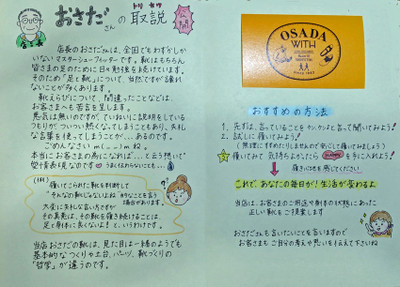 おさださんの取説
トリ セツ
公開
店長
店長のおさださんは、全国でもわずかしか
いないマスターシューフィッターです。靴はもちろん
皆さまの足のために日々勉強を続けています。
そのため「足と靴」について、当然ですが譲れ
ないことが多くあります。
靴えらびについて、間違ったことなどは、
お客さまへも苦言を呈します。
悪気は無いのですが、ていねいに説明をしている
つもりがついつい熱くなってしまうこともあり、失礼
な言葉を使ってしまうことが…あるのです。
ごめんなさい m(_ _)m
本当にお客さまの為になれば…と云う想いで
愛情表現なのです
うまく伝わらないことも…
(例)
履いてこられた靴を拝見して
「そんなの靴じゃないよ」と
場合があります。
大変に失礼な言い方ですが
その真意は、その靴を履き続けることは、
足と身体に良くないよ!と、いうわけです。
当店おさだの靴は、見た目は一緒のようでも
基本的なつくりや土台、パーツ、靴づくりの
"哲学"が違うのです。
OSADA
WITH
おすすめの方法
1. 先ずは、言っていることをちょっと聞いてみよう!
2. 試しに履いてみよう!
(無理にすすめたりしませんので安心して履いてみましょう)
3. 履いてみて気持ちよかったら を手に入れよう!
履き心地を感じてください!
これで、あなたの毎日が!生活が変わるよ
当店は、お客さまのご用途や身体の状態にあった
正しい靴をご提案します
おさださんも言いたいことを言いますので
お客さまもご自分の考えや思いを伝えて下さいね